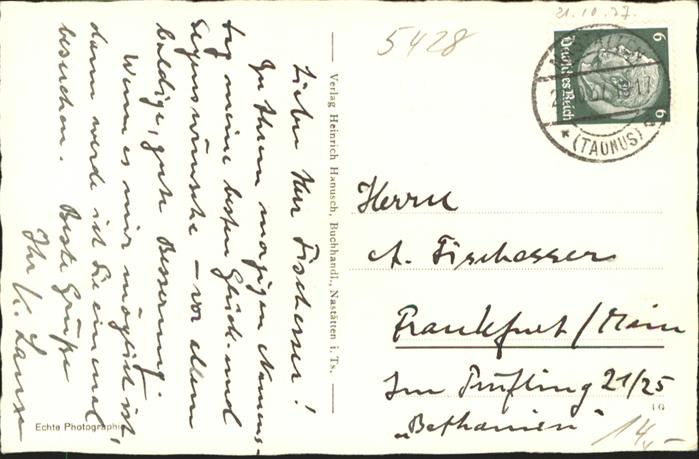 21.10.37.
5428
NASTÄTTEN
(TAUNUS)
Deutsches Reich
6
6
Lieber Herr Fischesser!
Zu Ihrem morgigen Namens-
tag meine besten Glück- und
Segenswünsche – vor allem
baldige, gute Besserung.
Wenn es mir möglich ist,
dann werde ich Sie einmal
besuchen. Beste Grüße
Ihr K.
Verlag Heinrich Hanusch, Buchhandl., Nastätten i. Ts.
Herrn
A. Fischesser
Frankfurt/Main
Im Prüfling 21/25
"Bethanien"
1G
Echte Photographie
14,-